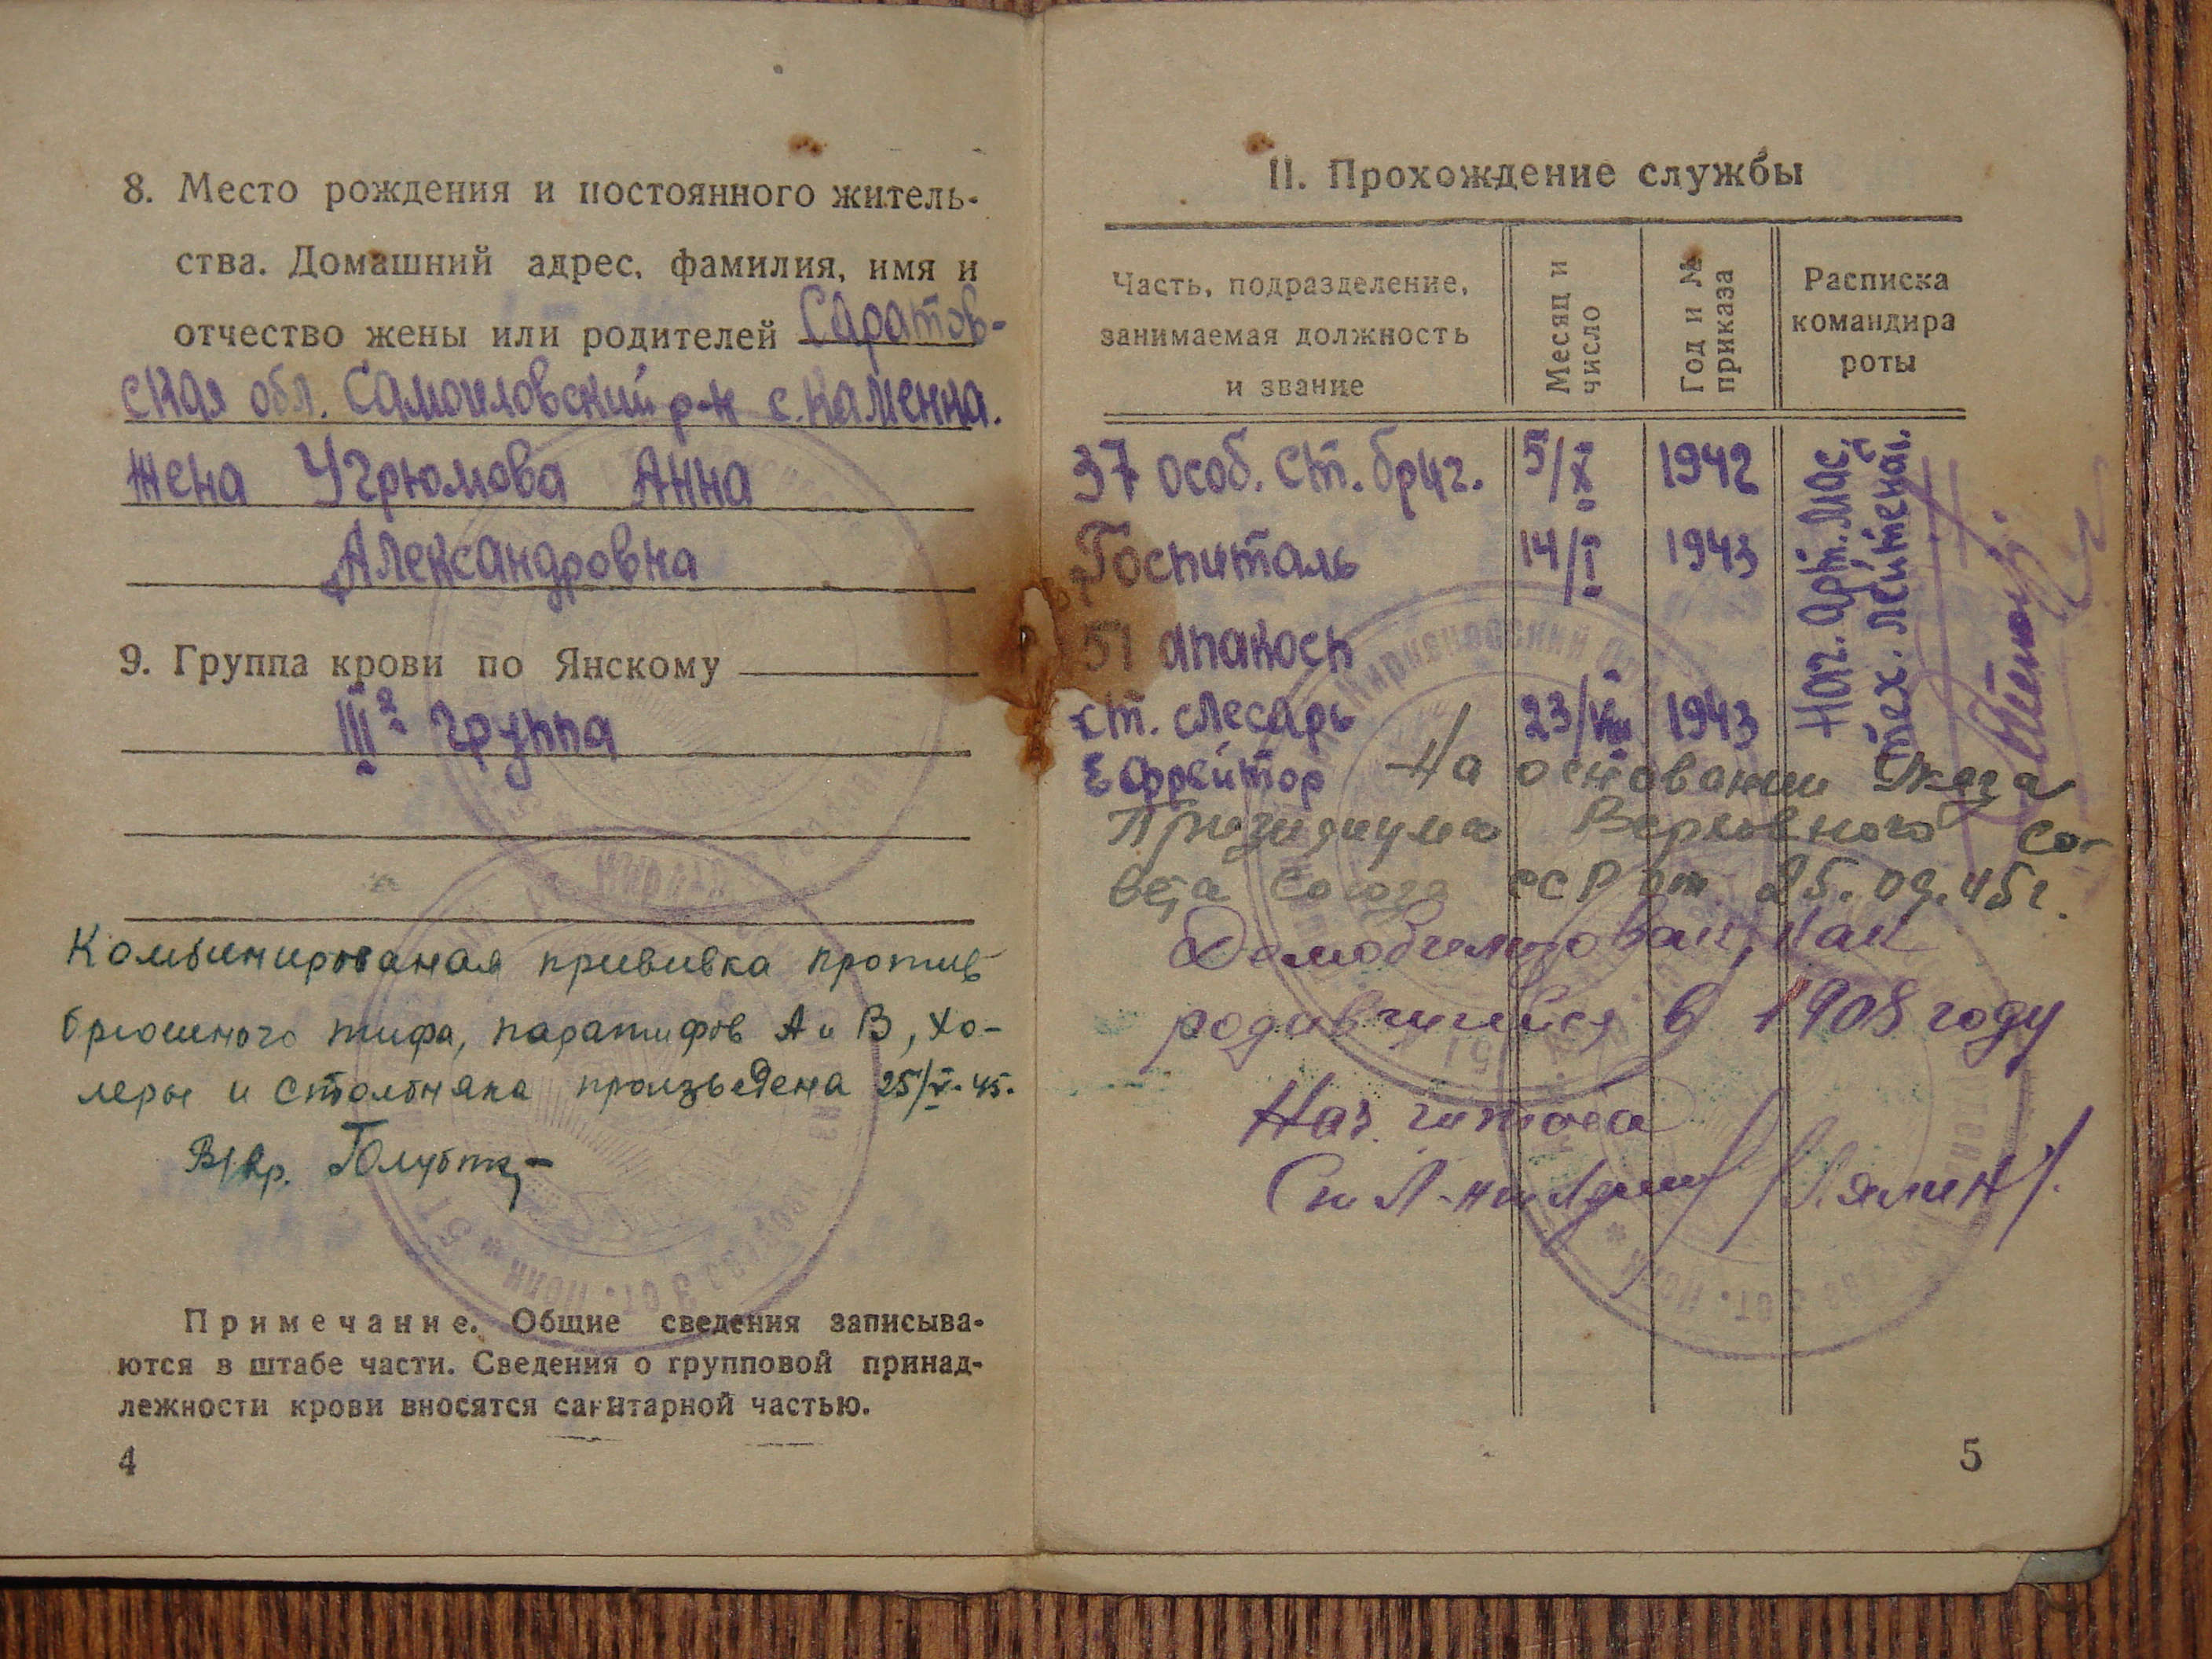 8. Место рождения и постоянного житель-
ства. Домашний адрес, фамилия, имя и
отчество жены или родителей Саратов-
ская обл. Самойловский р-н с. Каменка.
Жена Угрюмова Анна
Александровна
9. Группа крови по Янскому
III я группа
Комбинированая прививка против
брюшного тифа, паратифов А и В, хо-
леры и столбняка произведена 25/V-45.
В/вр.
Примечание. Общие сведения записыва-
ются в штабе части. Сведения о групповой принад-
лежности крови вносятся санитарной частью.
4
II. Прохождение службы
Часть, подразделение,
занимаемая должность
и звание
Месяц и
число
Год и №
приказа
Расписка
командира
роты
37 особ. ст. бриг. 5/X 1942
Госпиталь 14/I 1943
51
ст. слесарь 23/VIII 1943
Ефрейтор
Нач. Арт. Мас.
тех. лейтенан.
На основании Указа
Президиума Верховного Со-
вета Союза ССР от 25.09.45г.
Демобилизован, как
родившийся в 1908 году
Нач. штаба
Ст Л-нт /Лялин/.
5